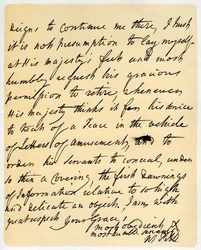 reigns to continue me there, I trust
it is not presumption to lay myself
at His majesty's feet and most
humbly request his gracious
permission to retire whenever
His majesty thinks it for his service
to of a Peace in the vehicle
of Letters of amusement, and to
order his servants to conceal, under
so thin a Covering, the first dawnings
of Information relative to so high
and delicate an object. I am with
great respect
Your Grace's
most obedient &
most humble servant